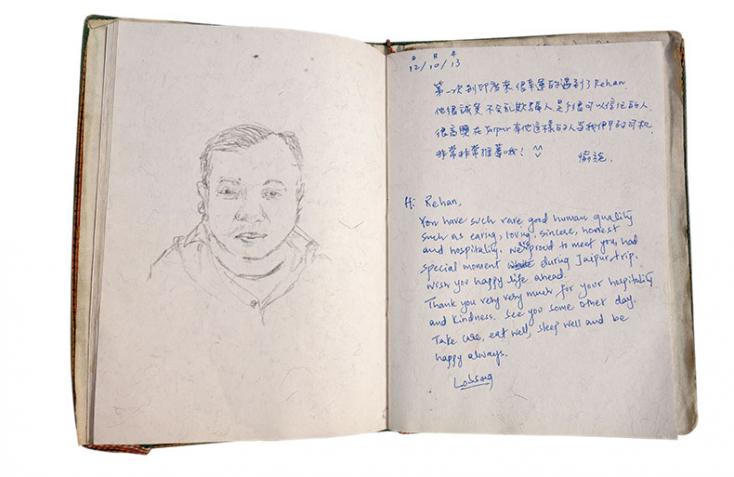 12/10/13
第一次到印度來 很幸運的遇到了Rehan
他很誠實 不會亂欺騙人 是個可以信任的人
很高興在Jaipur有他這樣的人當我們的司机
非常非常推薦哦! ^^
Hi Rehan,
You have such rare good human quality
such as caring, loving, sincere, honest
and hospitality. proud to meet you, had
special moment during Jaipur trip.
Wish you happy life ahead.
Thank you very very much for your hospitality
and kindness. See you some other day.
Take care, eat well, sleep well and be
happy always.
Lobsang